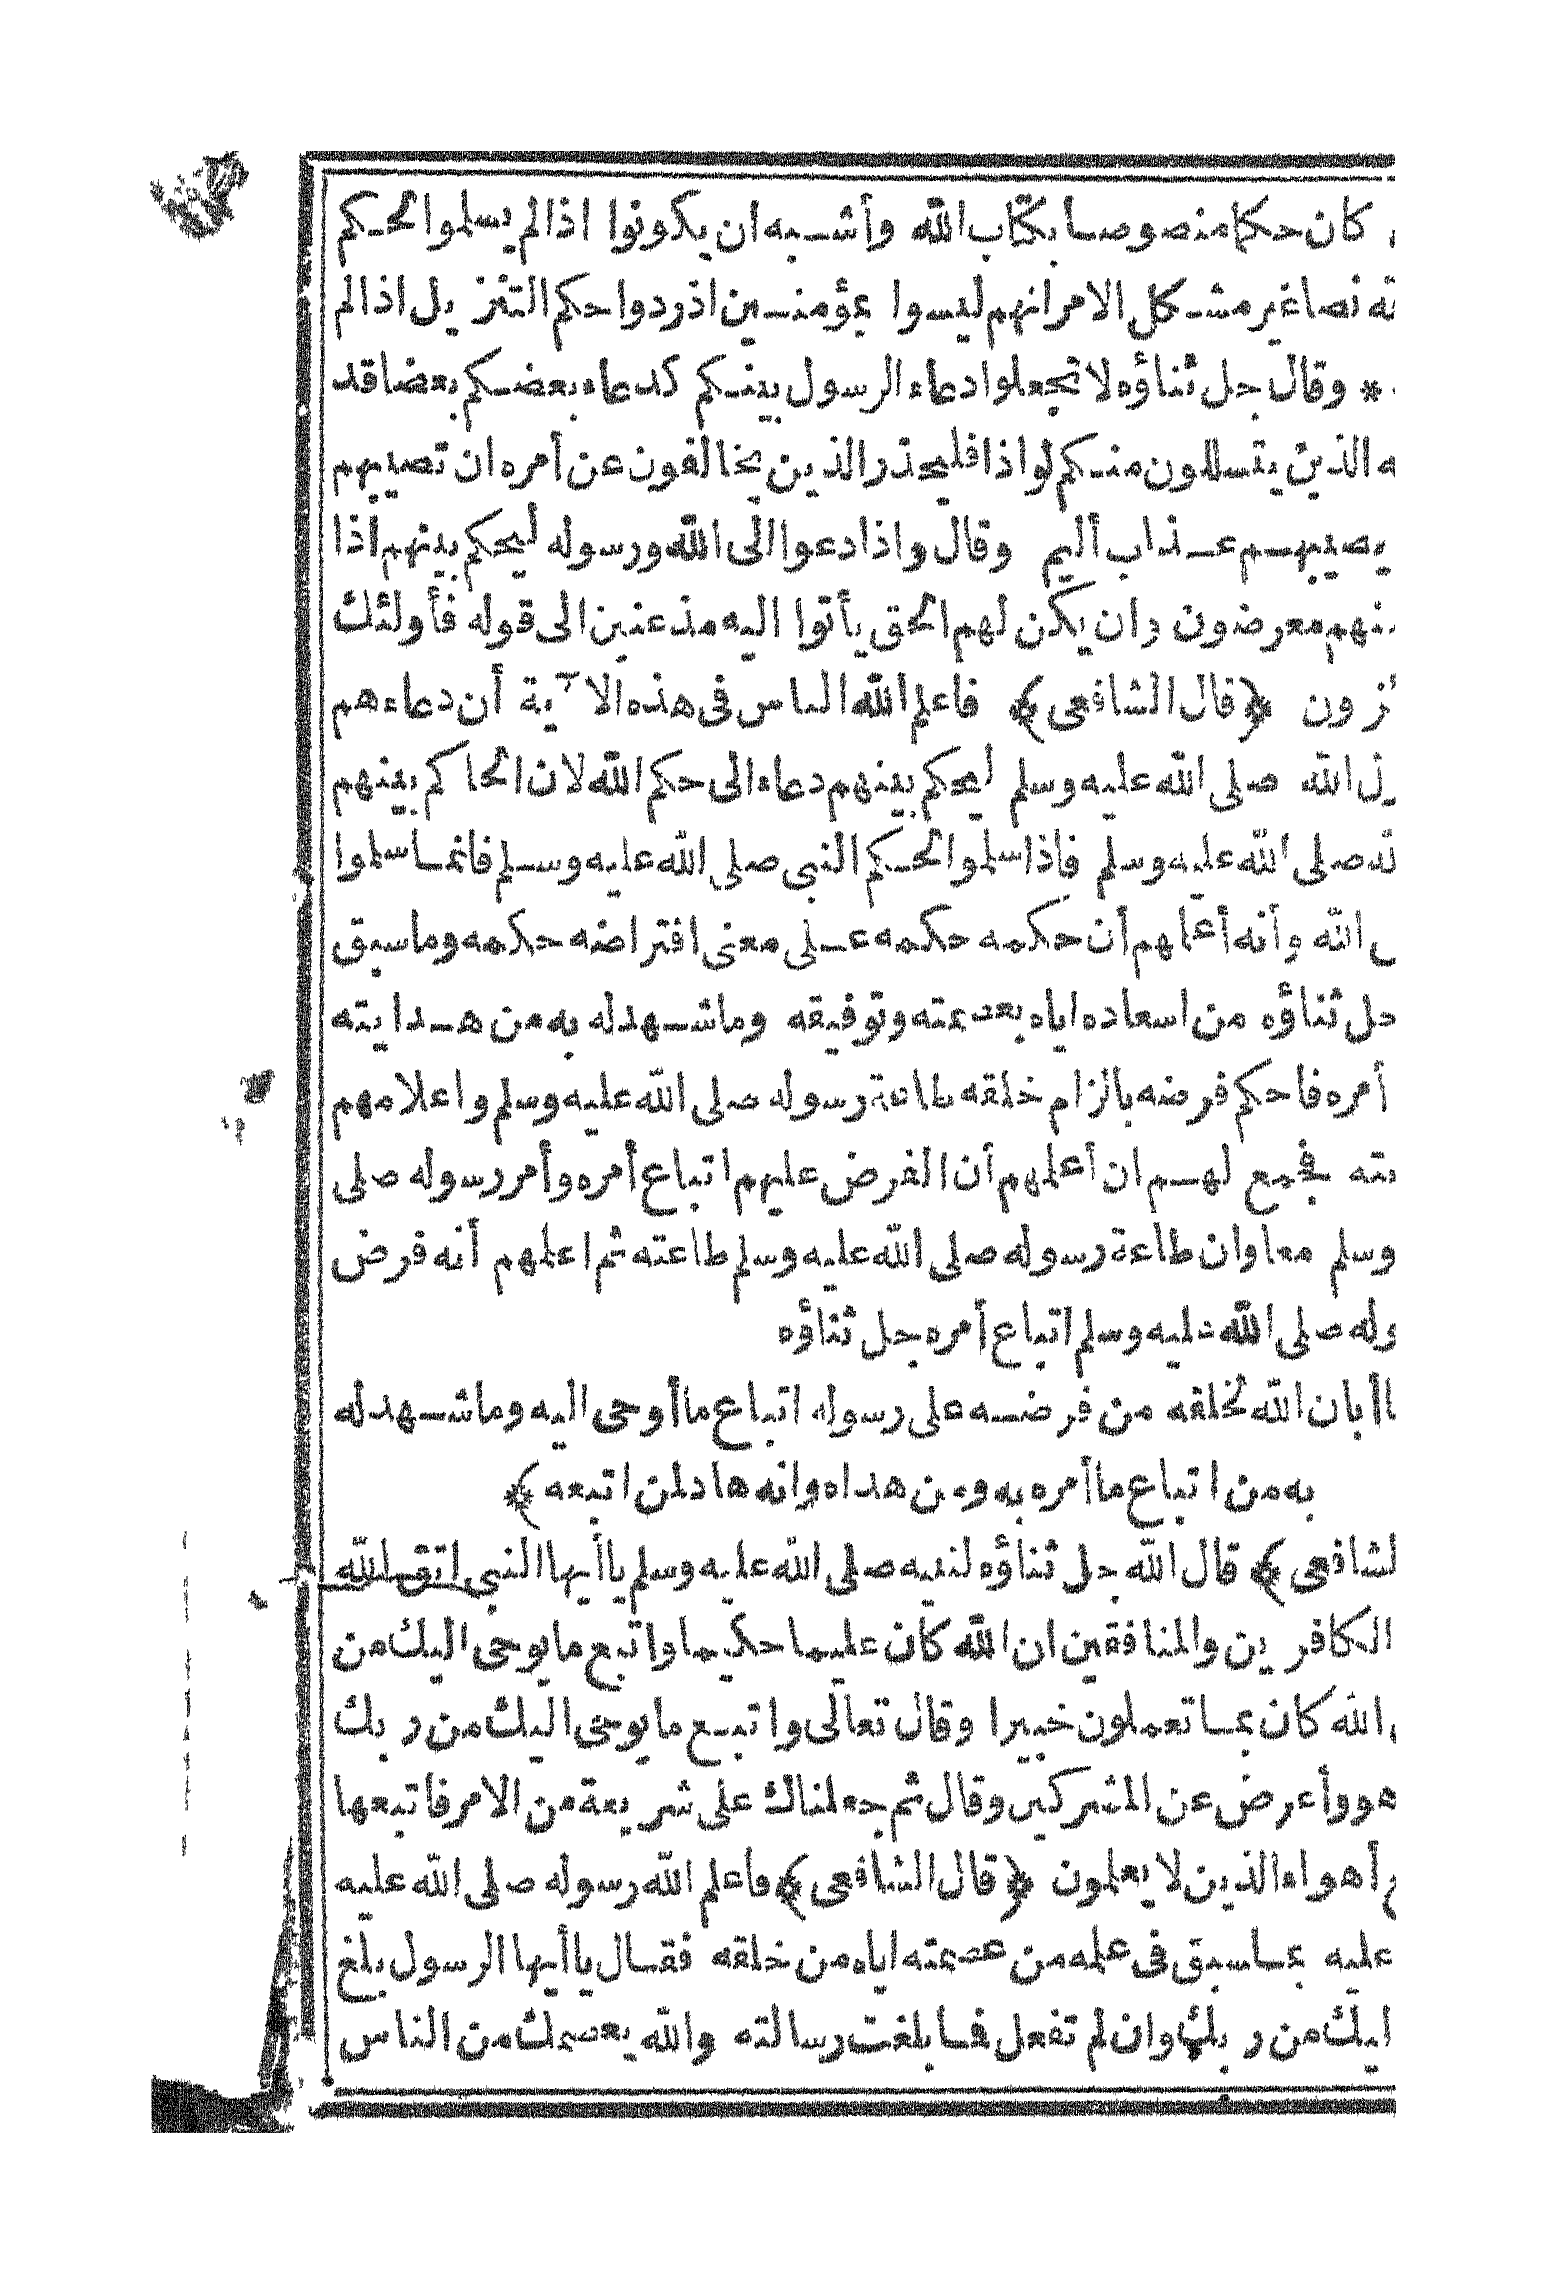 كان حكما منصوصا بكتاب الله وأشبه ان يكونوا اذا لم يسلموا الحكم
نصا غير مشكل الامر انهم ليسوا بمؤمنين اذ ردوا حكم التنزيل اذا لم
* وقال جل ثناؤه لا تجعلوا دعاء الرسول بينكم كدعاء بعضكم بعضا قد
الذين يتسللون منكم لواذا فليحذر الذين يخالفون عن أمره ان تصيبهم
يصيبهم عذاب أليم وقال واذا دعوا الى الله ورسوله ليحكم بينهم اذا
منهم معرضون وان يكن لهم الحق يأتوا اليه مذعنين الى قوله فأولئك
ئزون ﴿قال الشافعى﴾ فاعلم الله الناس فى هذه الآية أن دعاءهم
ول الله صلى الله عليه وسلم ليحكم بينهم دعاء الى حكم الله لان الحاكم بينهم
صلى الله عليه وسلم فاذا سلموا الحكم النبى صلى الله عليه وسلم فانما سلموا
الله وأنه أعلمهم أن حكمه حكمه على معنى افتراضه حكمه وما سبق
جل ثناؤه من اسعاده اياه بعصمته وتوفيقه وما شهد له به من هدايته
أمره فاحكم فرضه بالزام خلقه طاعة رسوله صلى الله عليه وسلم واعلامهم
فجمع لهم ان أعلمهم أن الفرض عليهم اتباع أمره وأمر رسوله صلى
وسلم معا وان طاعة رسوله صلى الله عليه وسلم طاعته ثم اعلمهم أنه فرض
وله صلى الله عليه وسلم اتباع أمره جل ثناؤه
ما أبان الله لخلقه من فرضه على رسوله اتباع ما أوحى اليه وما شهد له
به من اتباع ما أمره به ومن هداه وانه هاد لمن اتبعه﴾
لشافعى﴾ قال الله جل ثناؤه لنبيه صلى الله عليه وسلم يا أيها النبى اتق الله
الكافرين والمنافقين ان الله كان عليما حكيما واتبع ما يوحى اليك من
الله كان بما تعملون خبيرا وقال تعالى واتبع ما يوحى اليك من ربك
هو وأعرض عن المشركين وقال ثم جعلناك على شريعة من الامر فاتبعها
أهواء الذين لا يعلمون ﴿قال الشافعى﴾ فاعلم الله رسوله صلى الله عليه
عليه بما سبق فى علمه من عصمته اياه من خلقه فقال يا أيها الرسول بلغ
اليك من ربك وان لم تفعل فما بلغت رسالته والله يعصمك من الناس